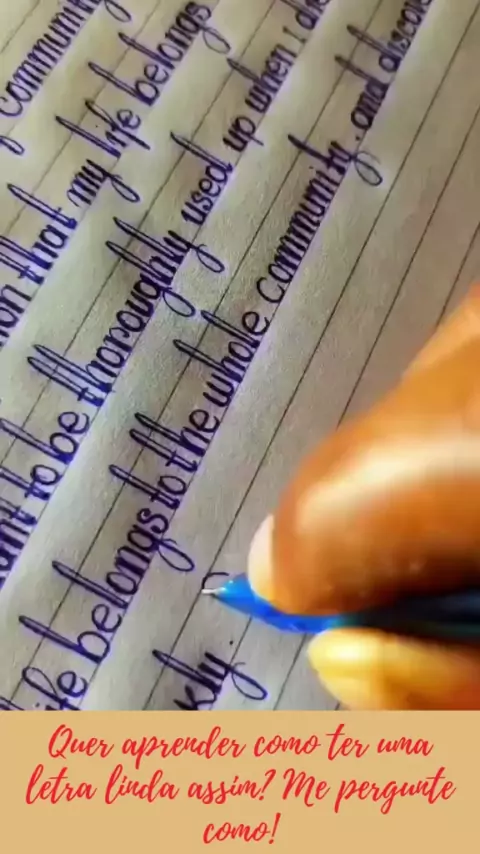 community
that my life belongs
to be thoroughly used up when i die
life belongs to the whole community. and
kly
Quer aprender como ter uma
letra linda assim? Me pergunte
como!